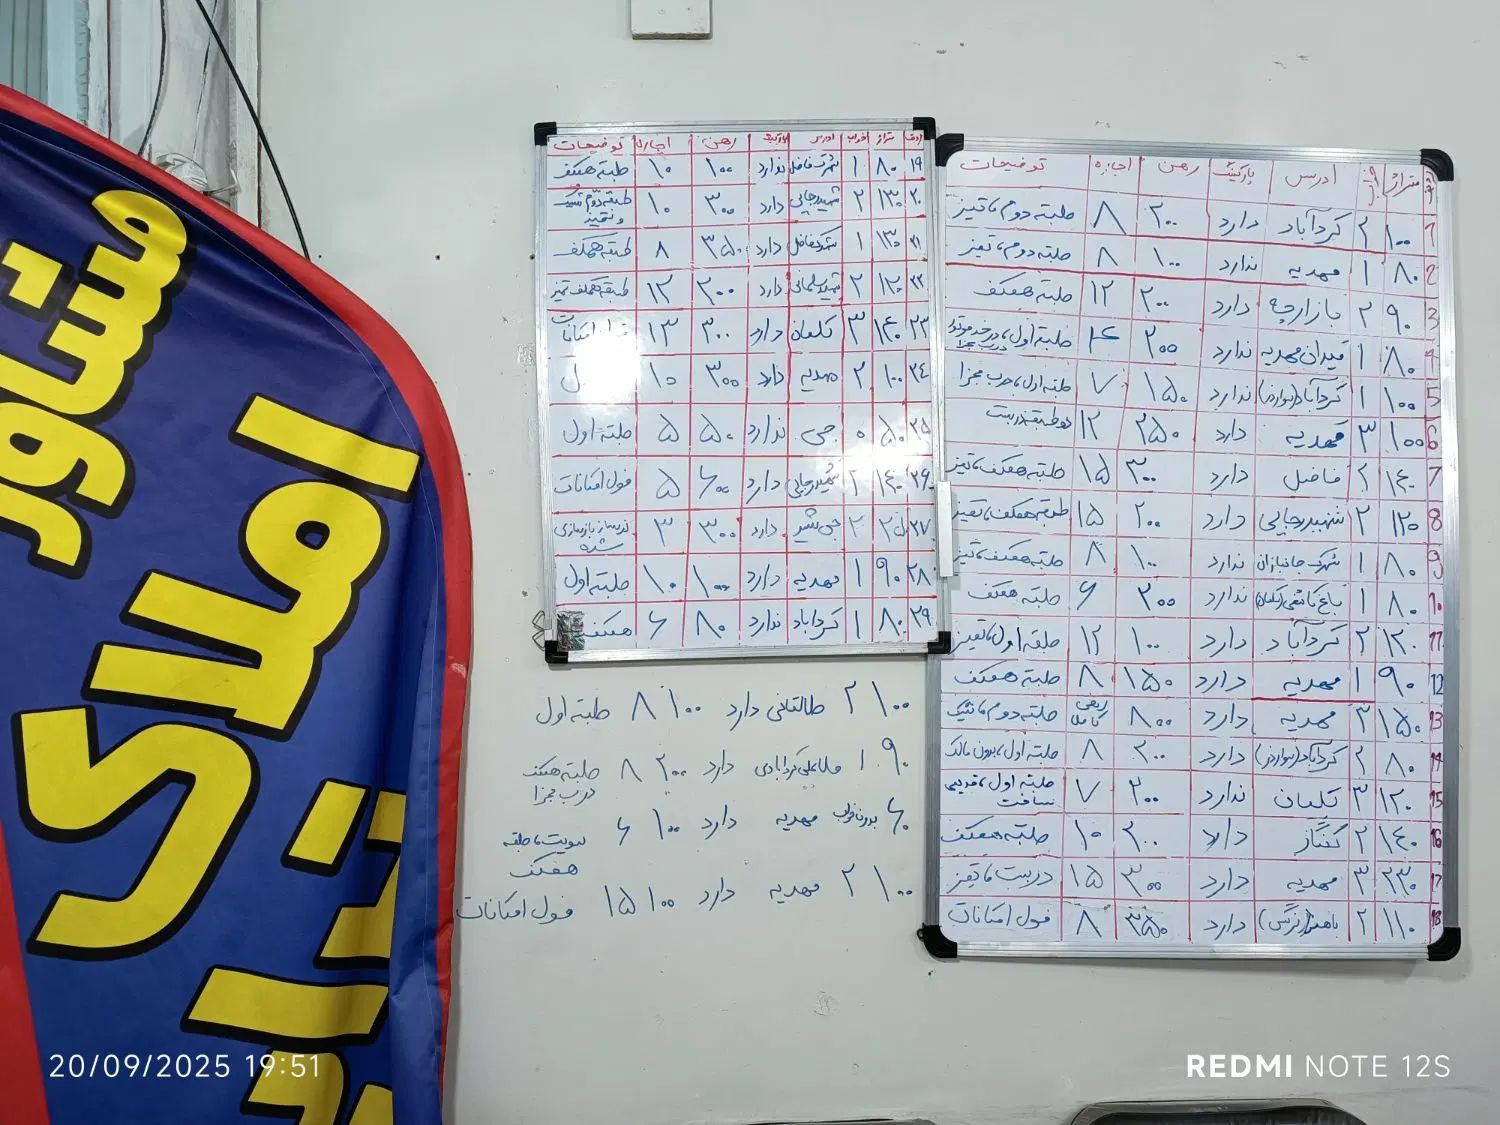 مشاور
املاک
ردیف متراژ خواب ادرس پارکینگ رهن اجاره توضیحات
1 ۱۰۰ ۲ گردآباد دارد ۲۰۰ ۸ طبقه دوم، تمیز
2 ۸۰ ۱ مهدیه ندارد ۱۰۰ ۸ طبقه دوم، تمیز
3 ۹۰ ۲ بازارچه دارد ۲۰۰ ۱۲ طبقه همکف
4 ۸۰ ۱ میدان مهدیه ندارد ۲۰۰ ۴ طبقه اول،
5 ۱۰۰ ۱ گردآباد ندارد ۱۵۰ ۷ طبقه اول، درب مجزا
6 ۱۰۰ ۳ مهدیه دارد ۲۵۰ ۱۲ دو طبقه دربست
7 ۱۴۰ ۲ فاضل دارد ۳۰۰ ۱۵ طبقه همکف، تمیز
8 ۱۲۰ ۲ شهید رجایی دارد ۲۰۰ ۱۵ طبقه همکف، تمیز
9 ۸۰ ۱ شهرک جانبازان ندارد ۱۰۰ ۸ طبقه همکف، تمیز
10 ۸۰ ۱ ندارد ۳۰۰ ۶ طبقه همکف
11 ۱۲۰ ۲ گردآباد دارد ۱۰۰ ۱۲ طبقه اول، تمیز
12 ۹۰ ۱ مهدیه دارد ۱۵۰ ۸ طبقه همکف
13 ۱۵۰ ۳ مهدیه دارد ۸۰۰ رهن کامل طبقه دوم، شیک
14 ۸۰ ۲ گردآباد دارد ۲۰۰ ۸ طبقه اول، بدون مالک
15 ۱۲۰ ۳ گلیان ندارد ۲۰۰ ۷ طبقه اول، قدیمی ساخت
16 ۱۴۰ ۲ گلناز دارد ۲۰۰ ۱۰ طبقه همکف
17 ۲۳۰ ۳ مهدیه دارد ۳۰۰ ۱۵ دربست، تمیز
18 ۱۱۰ ۲ باهنر (نرگس) دارد ۳۵۰ ۸ فول امکانات
ردیف متراژ خواب ادرس پارکینگ رهن اجاره توضیحات
۱۹ ۸۰ ۱ شهرک فاضل ندارد ۱۰۰ ۱۰ طبقه همکف
۲۰ ۱۳۰ ۲ شهید رجایی دارد ۳۰۰ ۱۰ طبقه دوم شیک و تمیز
۲۱ ۱۳۰ ۱ شهرک فاضل دارد ۳۵۰ ۸ طبقه همکف
۲۲ ۱۲۰ ۲ شهید سلیمانی دارد ۲۰۰ ۱۲ طبقه همکف تمیز
۲۳ ۱۴۰ ۳ گلیان دارد ۳۰۰ ۱۳ امکانات
۲۴ ۱۰۰ ۲ مهدیه دارد ۳۰۰ ۱۰
۲۵ ۵۰ ۰ جی ندارد ۵۰ ۵ طبقه اول
۲۶ ۱۴۰ ۲ شهید رجایی دارد ۶۰۰ ۵ فول امکانات
۲۷ جی شیر دارد ۳۰۰ ۳ بازسازی شده
۲۸ ۹۰ ۱ مهدیه دارد ۱۰۰ ۱۰ طبقه اول
۲۹ ۸۰ ۱ گردآباد ندارد ۸۰ ۶ همکف
۱۰۰ ۲ طالقانی دارد ۱۰۰ ۸ طبقه اول
۹۰ ۱ دارد ۲۰۰ ۸ طبقه همکف
درب مجزا
۶۰ بدون خواب مهدیه دارد ۱۰۰ ۶ سوییت، طبقه
همکف
۱۰۰ ۲ مهدیه دارد ۱۰۰ ۱۵ فول امکانات
20/09/2025 19:51
REDMI NOTE 12S